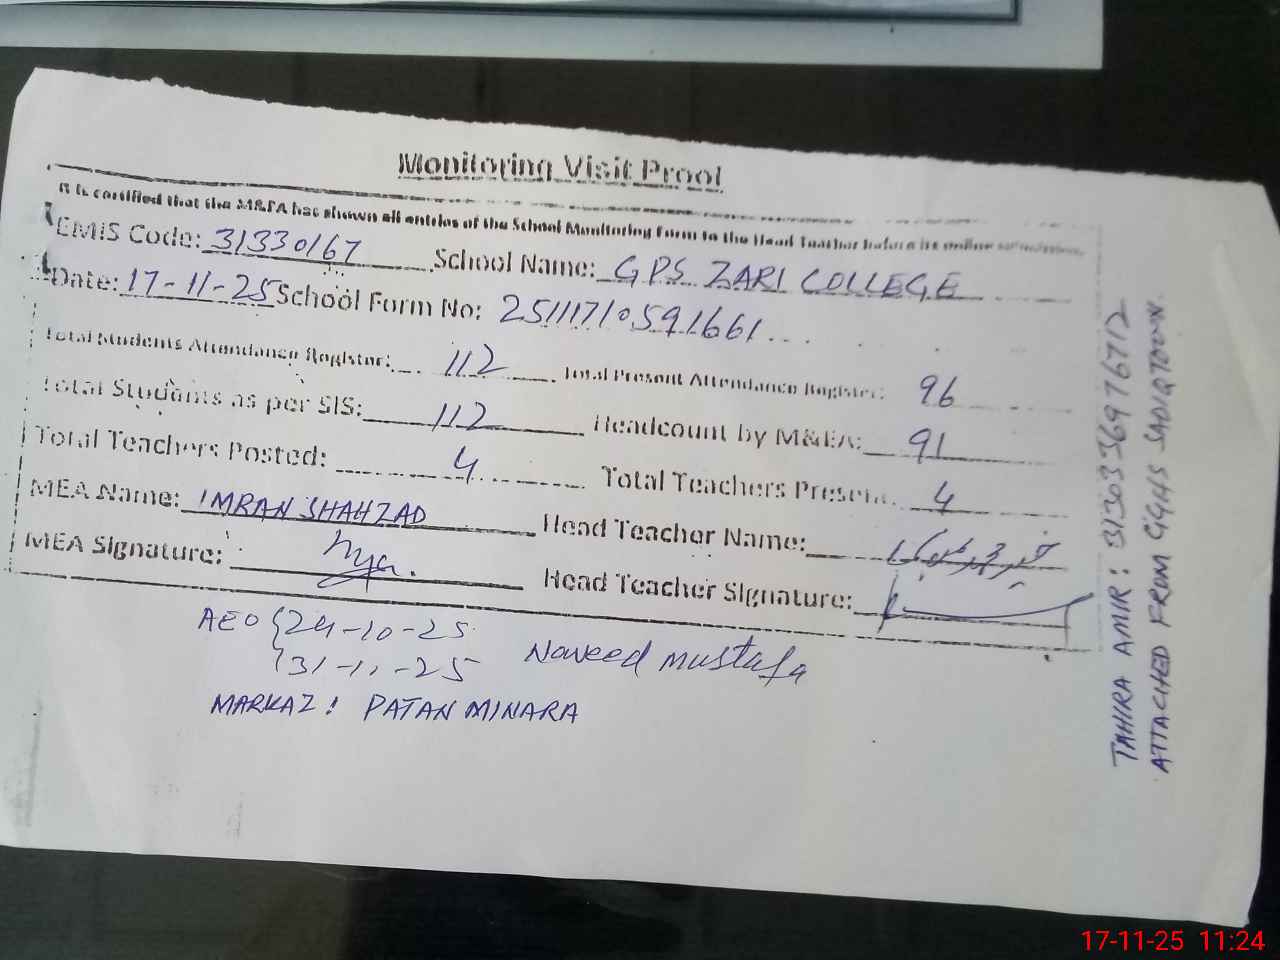 Monitoring Visit Proof
It is certified that the M&EA has shown all entries of the School Monitoring Form to the Head Teacher before its online submission.
EMIS Code: 31330167 School Name: GPS ZARI COLLEGE
Date: 17-11-25 School Form No: 25111710591661
Total Students Attendance Register: 112 Total Present Attendance Register: 96
Total Students as per SIS: 112 Headcount by M&EA: 91
Total Teachers Posted: 4 Total Teachers Present: 4
MEA Name: IMRAN SHAHZAD Head Teacher Name:
MEA Signature: Head Teacher Signature:
AEO { 24-10-25
31-11-25 Naveed mustafa
MARKAZ: PATAN MINARA
TAHIRA AMIR: 3130336976712
ATTACHED FROM GGHS SADIQ TOWN.
17-11-25 11:24